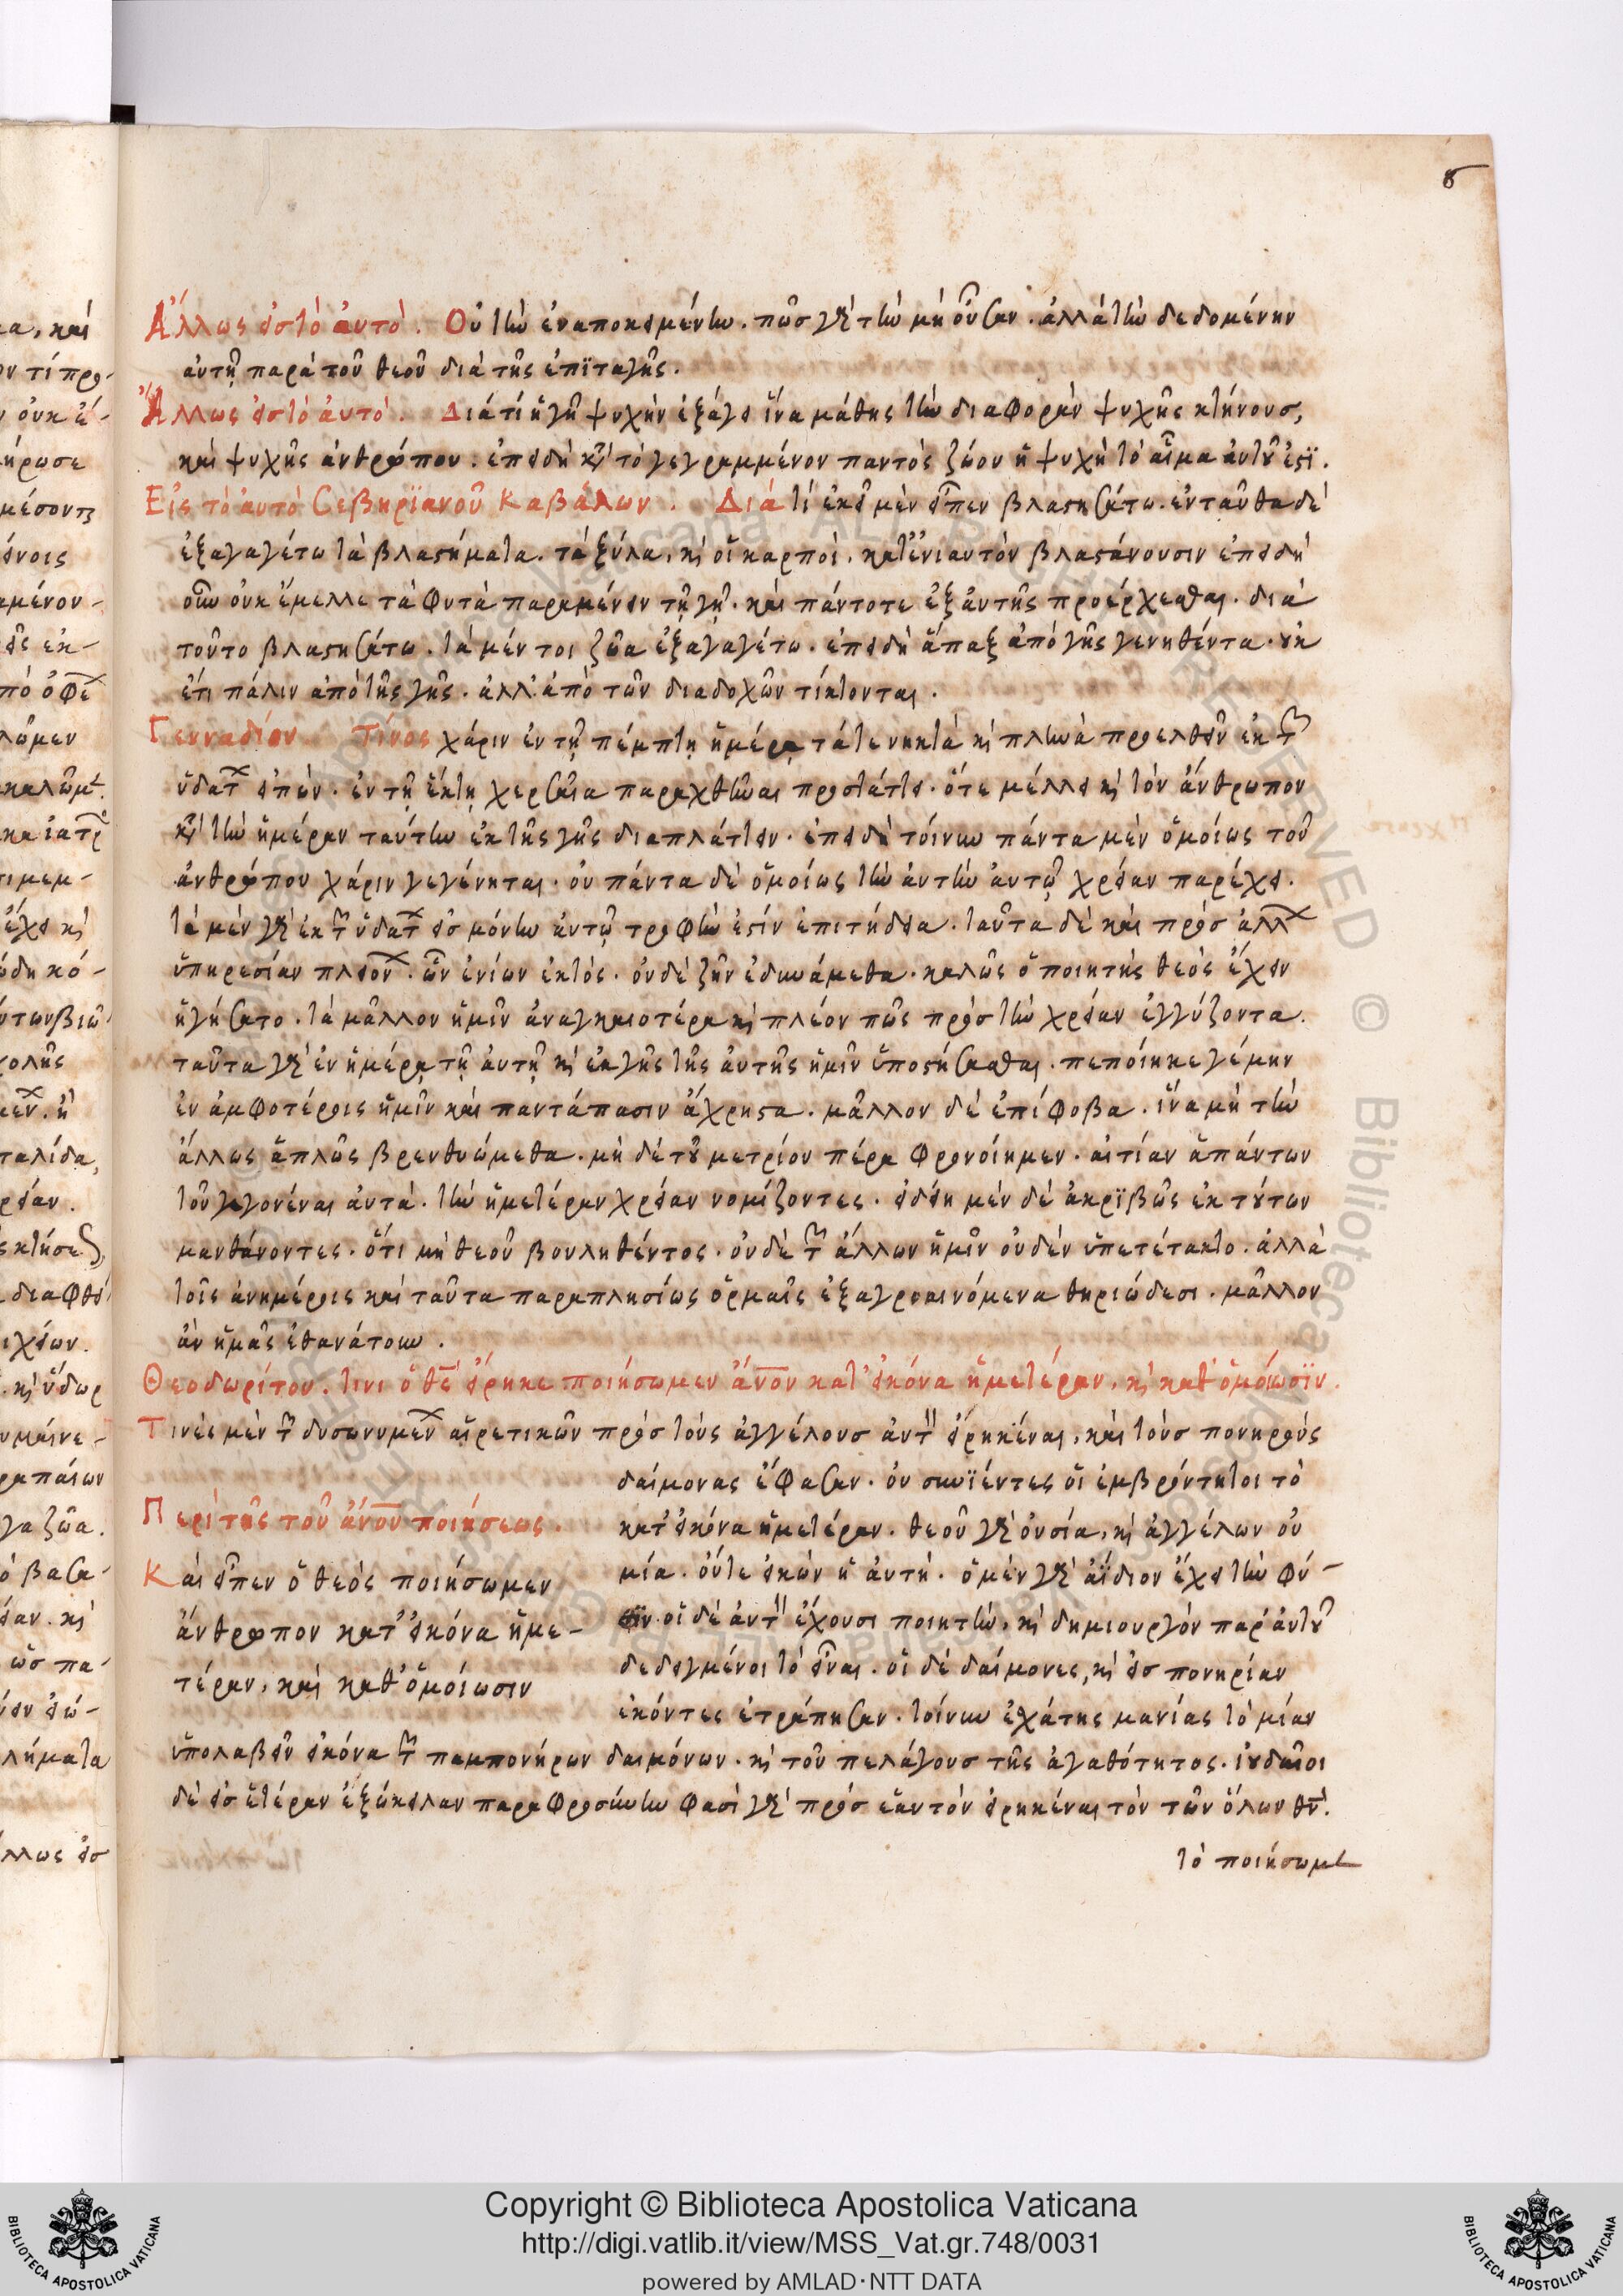 Ἄλλως εἰς τὸ αὐτὸ. Οὐ τὴν ἐναποκειμένην. πῶς γὰρ τὴν μὴ οὖσαν. ἀλλὰ τὴν δεδομένην
αὐτῇ παρὰ τοῦ θεοῦ διὰ τῆς ἐπϊταγῆς.
Ἄλλως εἰς τὸ ἀυτὸ. Διάτί ἡ γῆ ψυχὴν ἐξάγει ἵνα μάθης τὴν διαφορὰν ψυχῆς κτήνους,
καὶ ψυχῆς ἀνθρώπου. ἐπειδὴ κατὰ τὸ γεγραμμένον παντὸς ζώου ἡ ψυχὴ τὸ αἷμα αὐτοῦ ἐστϊ.
Εἰς τὸ ἀυτὸ Σεβηρϊανοῦ Καβάλων. Διὰ τί ἐκεῖ μὲν εἶπεν βλαστησάτω. ἐνταῦθα δὲ
ἐξαγαγέτω τὰ βλαστήματα. τὰ ξύλα, καὶ οἱ καρποὶ, κατ᾽ ἐνιαυτὸν βλαστάνουσιν ἐπειδὴ
οὖν οὐκ ἔμελλε τὰ φυτὰ παραμένειν τῇ γῇ. καὶ πάντοτε ἐξ ἀυτῆς προέρχεσθαι. διὰ
τοῦτο βλαστησάτω. τὰ μέν τοι ζῶα ἐξαγαγέτω. ἐπειδὴ ἅπαξ ἀπὸ γῆς γενηθέντα. οὐκ
ἔτι πάλιν ἀπὸ τῆς γῆς. ἀλλ᾽ ἀπὸ τῶν διαδοχῶν τίκτονται.
Γενναδίου Τίνος χάριν ἐν τῇ πέμπτῃ ἡμέρᾳ τά τε νηκτὰ καὶ πτηνὰ προελθεῖν ἐκ τῶν
ὑδάτων εἰπὼν. ἐν τῇ ἕκτῃ χερσαῖα παραχθῆναι προστάττει. ὅτε μέλλει καὶ τὸν ἄνθρωπον
κατὰ τὴν ἡμέραν ταύτην ἐκ τῆς γῆς διαπλάττειν. ἐπειδὴ τοίνυν πάντα μὲν ὁμοίως τοῦ
ἀνθρώπου χάριν γεγένηται. οὐ πάντα δὲ ὁμοίως τὴν ἀυτὴν ἀυτῷ χρείαν παρέχει.
τὰ μὲν γὰρ ἐκ τῶν ὑδάτων εἰς μόνην ἀυτῷ τροφὴν ἐστὶν ἐπιτήδεια. ταῦτα δὲ καὶ πρὸς ἄλλην
ὑπηρεσίαν πλείονα. ὧν ἐνίων ἐκτὸς. οὐδὲ ζῆν ἐδυνάμεθα. καλῶς ὁ ποιητὴς θεὸς ἔχειν
ἡγήσατο. τὰ μᾶλλον ἡμῖν ἀναγκαιοτέρα καὶ πλέον πῶς πρὸς τὴν χρείαν ἐγγύζοντα.
ταῦτα γὰρ ἐν ἡμέρᾳ τῇ ἀυτῇ καὶ ἐκ γῆς τῆς ἀυτῆς ἡμῖν ὑποστήσασθαι. πεποίηκε γέ μην
ἐν ἀμφοτέροις ἡμῖν καὶ παντάπασιν ἄχρηστα. μᾶλλον δὲ ἐπίφοβα. ἵνα μὴ τὴν
ἄλλως ἁπλῶς βρενθυώμεθα. μὴ δὲ τοῦ μετρίου πέρα φρονοίημεν. αἰτίαν ἁπάντων
τοῦ γεγονέναι ἀυτὰ. τὴν ἡμετέραν χρείαν νομίζοντες. εἰδείη μὲν δὲ ἀκρϊβῶς ἐκ τούτων
μανθάνοντες. ὅτι μὴ θεοῦ βουληθέντος. οὐδὲ τῶν ἄλλων ἡμῖν οὐδὲν ὑπετέτακτο. ἀλλὰ
τοῖς ἀνημέροις καὶ ταῦτα παραπλησίως ὁρμαῖς ἐξαγριαινόμενα θηριώδεσι. μᾶλλον
ἂν ἡμᾶς ἐθανάτουν.
Θεοδωρίτου. Τίνι ὁ θεὸς εἴρηκε ποιήσωμεν ἄνον κατ᾽ εἰκόνα ἡμετέραν, καὶ καθ᾽ ὁμοίωσϊν.
Τινὲς μὲν τῶν δυσωνυμων αἱρετικῶν πρὸς τοὺς ἀγγέλους ἀυτὸν εἰρηκέναι, καὶ τοὺς πονηροὺς
δαίμονας ἔφασαν. οὐ συνϊέντες οἱ ἐμβρόντητοι τὸ
κατ᾽ εἰκόνα ἡμετέραν. θεοῦ γὰρ οὐσία, καὶ ἀγγέλων οὐ
μία. οὔτε εἰκὼν ἡ ἀυτὴ. ὁ μὲν γὰρ ἀΐδιον ἔχει τὴν φύ-
σϊν. οἱ δὲ ἀυτὸν ἔχουσι ποιητὴν, καὶ δημιουργὸν παρ᾽ ἀυτοῦ
δεδεγμένοι τὸ εἶναι. οἱ δὲ δαίμονες, καὶ εἰς πονηρίαν
ἑκόντες ἐτράπησαν. τοίνυν ἐσχάτης μανίας τὸ μίαν
Περὶ τῆς τοῦ ἄνου ποιήσεως.
Καὶ εἶπεν ὁ θεὸς ποιήσωμεν
ἄνθρωπον κατ᾽ εἰκόνα ἡμε-
τέραν, καὶ καθ᾽ ὁμοίωσιν
ὑπολαβεῖν εἰκόνα τῶν παμπονήρων δαιμόνων. καὶ τοῦ πελάγους τῆς ἀγαθότητος. ἰουδαῖοι
δὲ εἰς ἑτέραν ἐξώκειλαν παραφροσύνην φασὶ γὰρ πρὸς ἑαυτὸν εἰρηκέναι τὸν τῶν ὅλων θν.
τὸ ποιήσωμεν
Copyright © Biblioteca Apostolica Vaticana
http://digi.vatlib.it/view/MSS_Vat.gr.748/0031
powered by AMLAD·NTT DATA